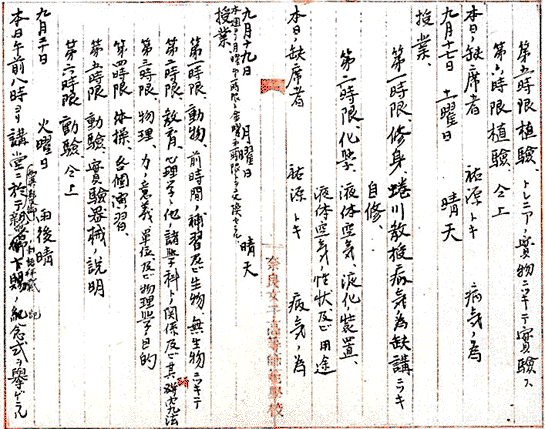 第五時限 植驗、トレニアノ實物ニツキテ實驗ス
第六時限 植驗 仝上
本日ノ缺席者 祐源トキ 病気ノ為
九月十七日 土曜日 晴天
授業、
第一時限、修身、蜷川教授病気ノ為缺講ニツキ
自修、
第二時限、化學、液体空気ノ液化装置、
液体空気ノ性状及ビ用途
本日ノ缺席者 祐源トキ 病気ノ為
奈良女子高等師範學校
九月十九日 月曜日 晴天
授業、
第一時限、動物、前時間ノ補習及ビ生物ト無生物ニツキテ
第二時限、教育、心理學ト他ノ諸學科トノ関係及ビ其研究法
第三時限、物理、力ノ意義、單位及ビ物理學ノ目的
第四時限 体操、各個演習、
第五時限 動驗、實驗器械ノ説明
第六時限 動驗 仝上
九月二十日 火曜日 雨後晴
本日午前八時ヨリ講堂ニ於テ御下賜ノ紀念式ヲ擧ゲラル